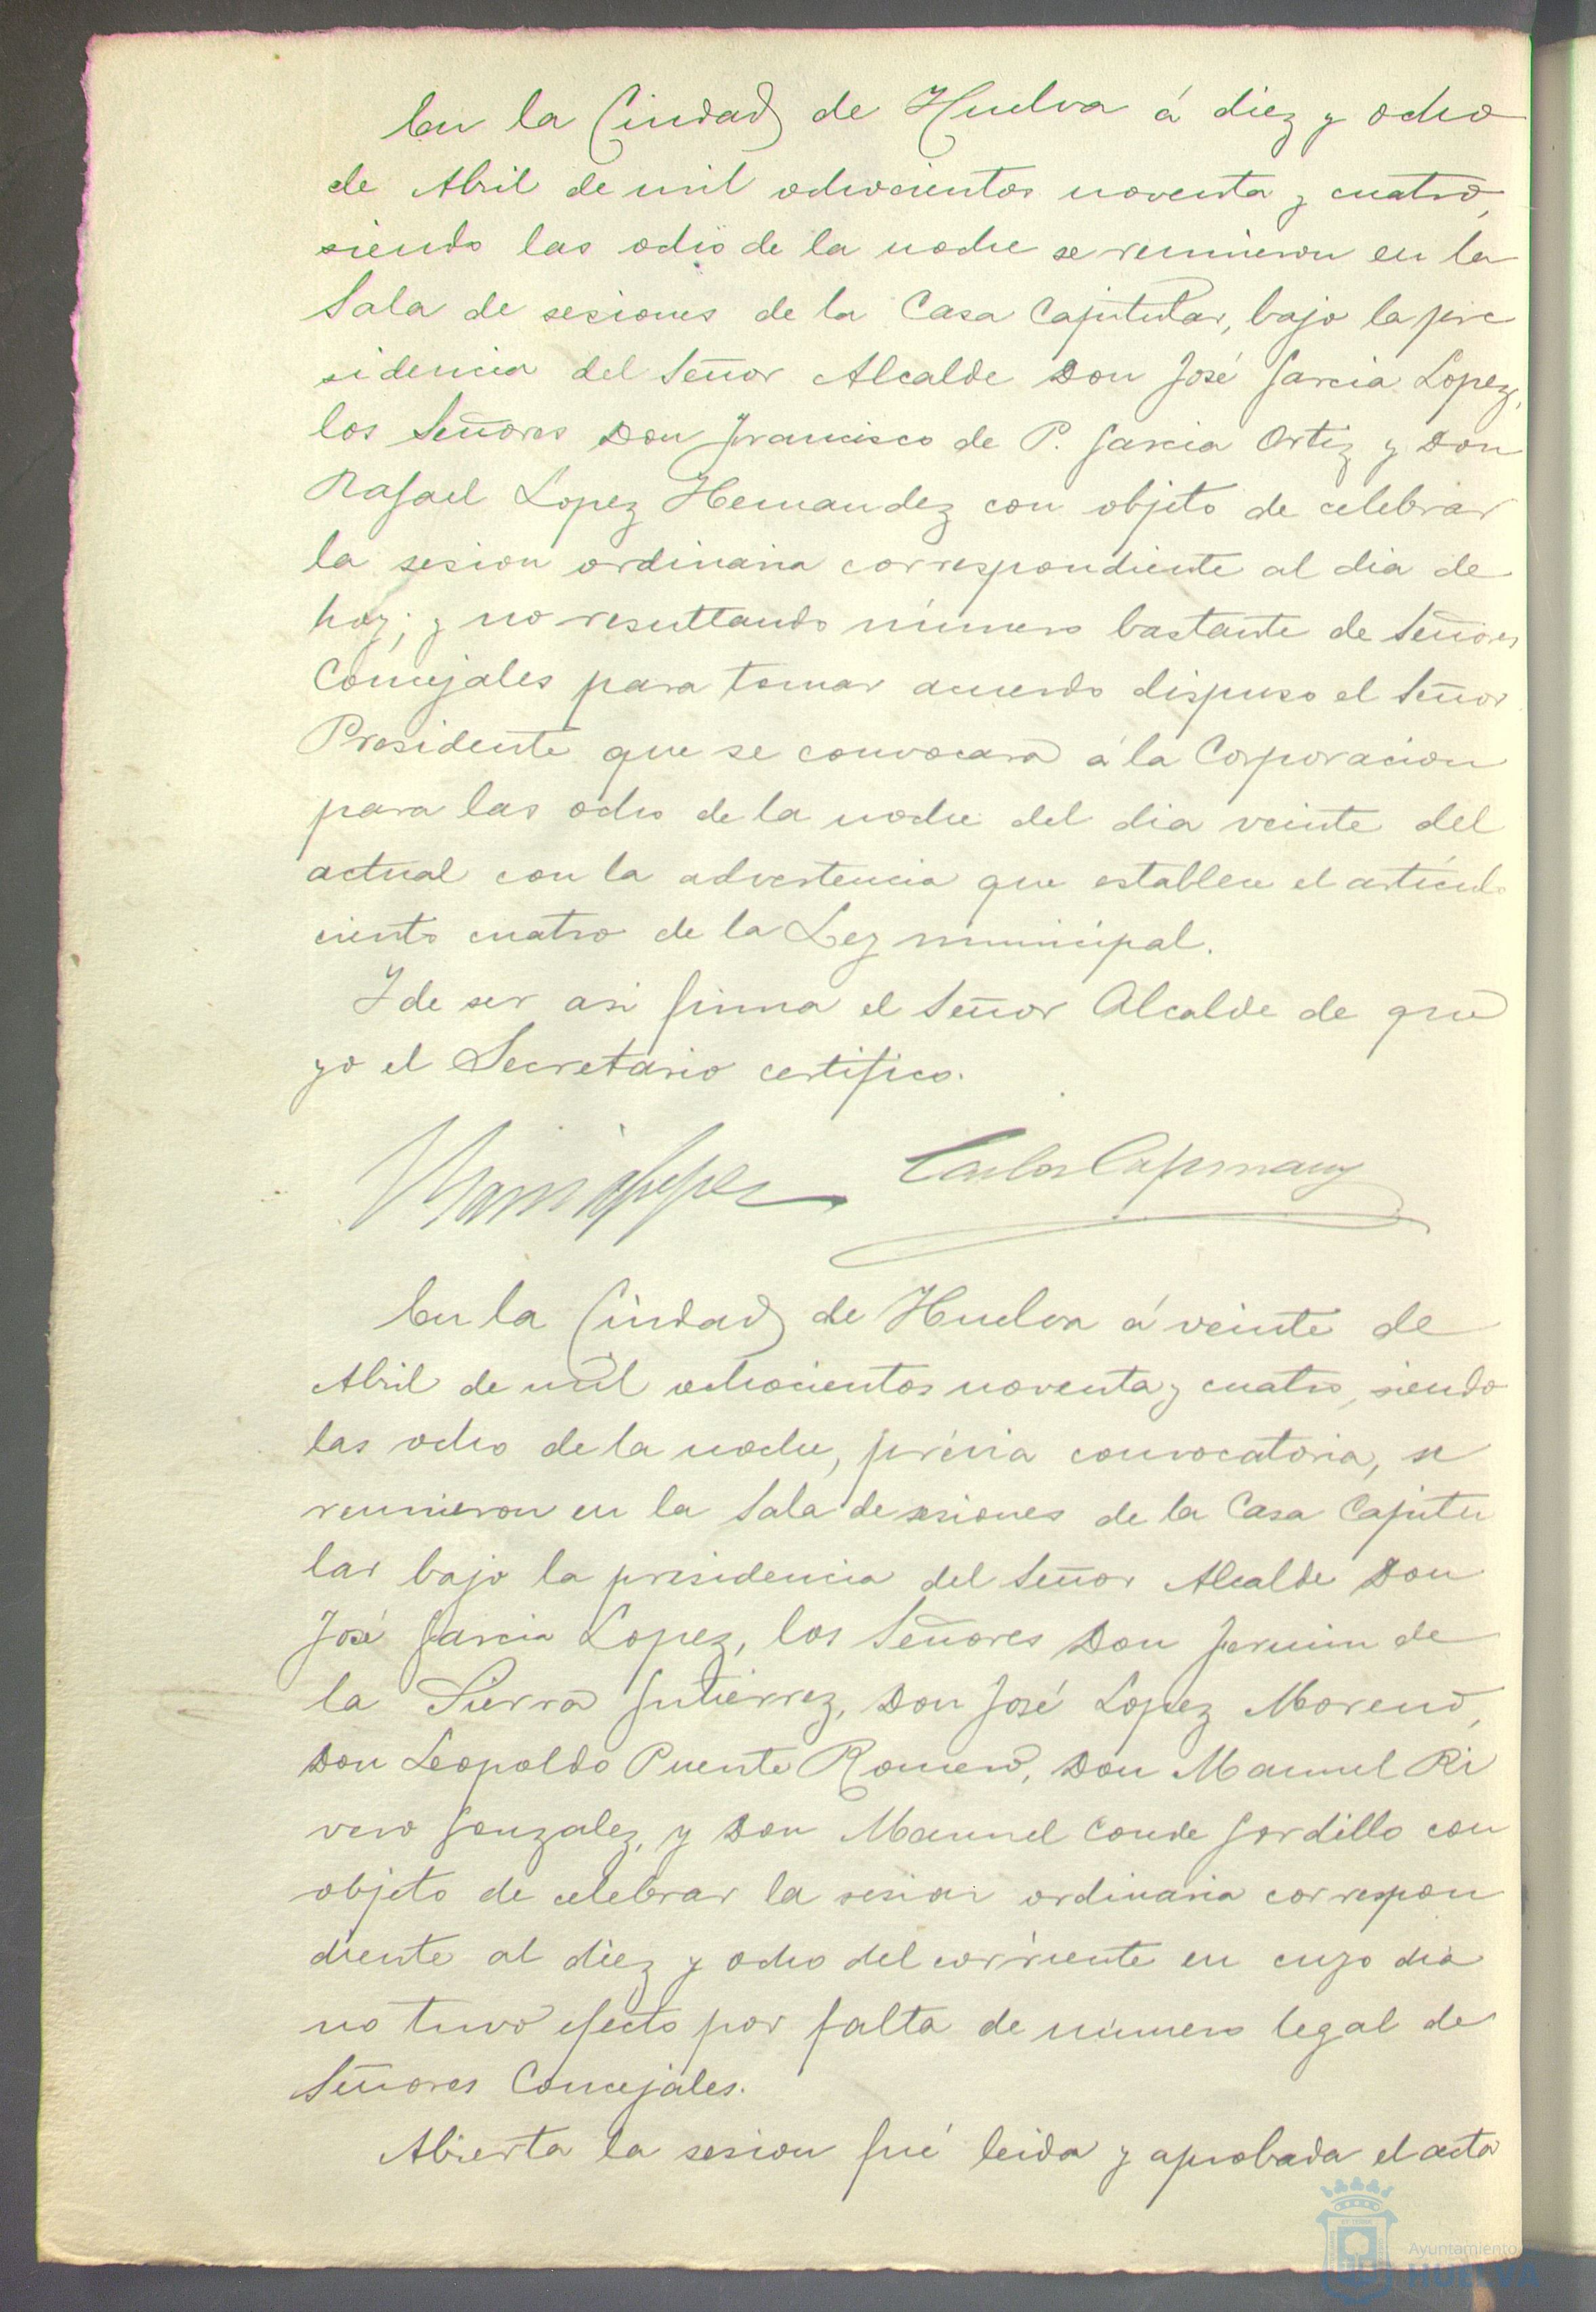 En la Ciudad de Huelva á diez y ocho
de Abril de mil ochocientos noventa y cuatro,
siendo las ocho de la noche se reunieron en la
Sala de sesiones de la Casa Capitular, bajo la pre
sidencia del Señor Alcalde Don José Garcia Lopez,
los Señores Don Francisco de P. Garcia Ortiz y Don
Rafael Lopez Hernandez con objeto de celebrar
la sesion ordinaria correspondiente al dia de
hoy; y no resultando número bastante de Señores
Concejales para tomar acuerdo dispuso el Señor
Presidente que se convocara á la Corporacion
para las ocho de la noche del dia veinte del
actual con la advertencia que establece el artículo
ciento cuatro de la Ley municipal.
Y de ser asi firma el Señor Alcalde de que
yo el Secretario certifico.
Carlos Capmany
En la Ciudad de Huelva á veinte de
Abril de mil ochocientos noventa y cuatro, siendo
las ocho de la noche, prévia convocatoria, se
reunieron en la Sala de sesiones de la Casa Capitu
lar bajo la presidencia del Señor Alcalde Don
José Garcia Lopez, los Señores Don Fermin de
la Sierra Gutierrez, Don José Lopez Moreno,
Don Leopoldo Puente Romero, Don Manuel Ri
vero Gonzalez, y Don Manuel Conde Gordillo con
objeto de celebrar la sesion ordinaria correspon
diente al diez y ocho del corriente en cuyo dia
no tuvo efecto por falta de número legal de
Señores Concejales.
Abierta la sesion fué leida y aprobada el acta
Ayuntamiento
HUELVA